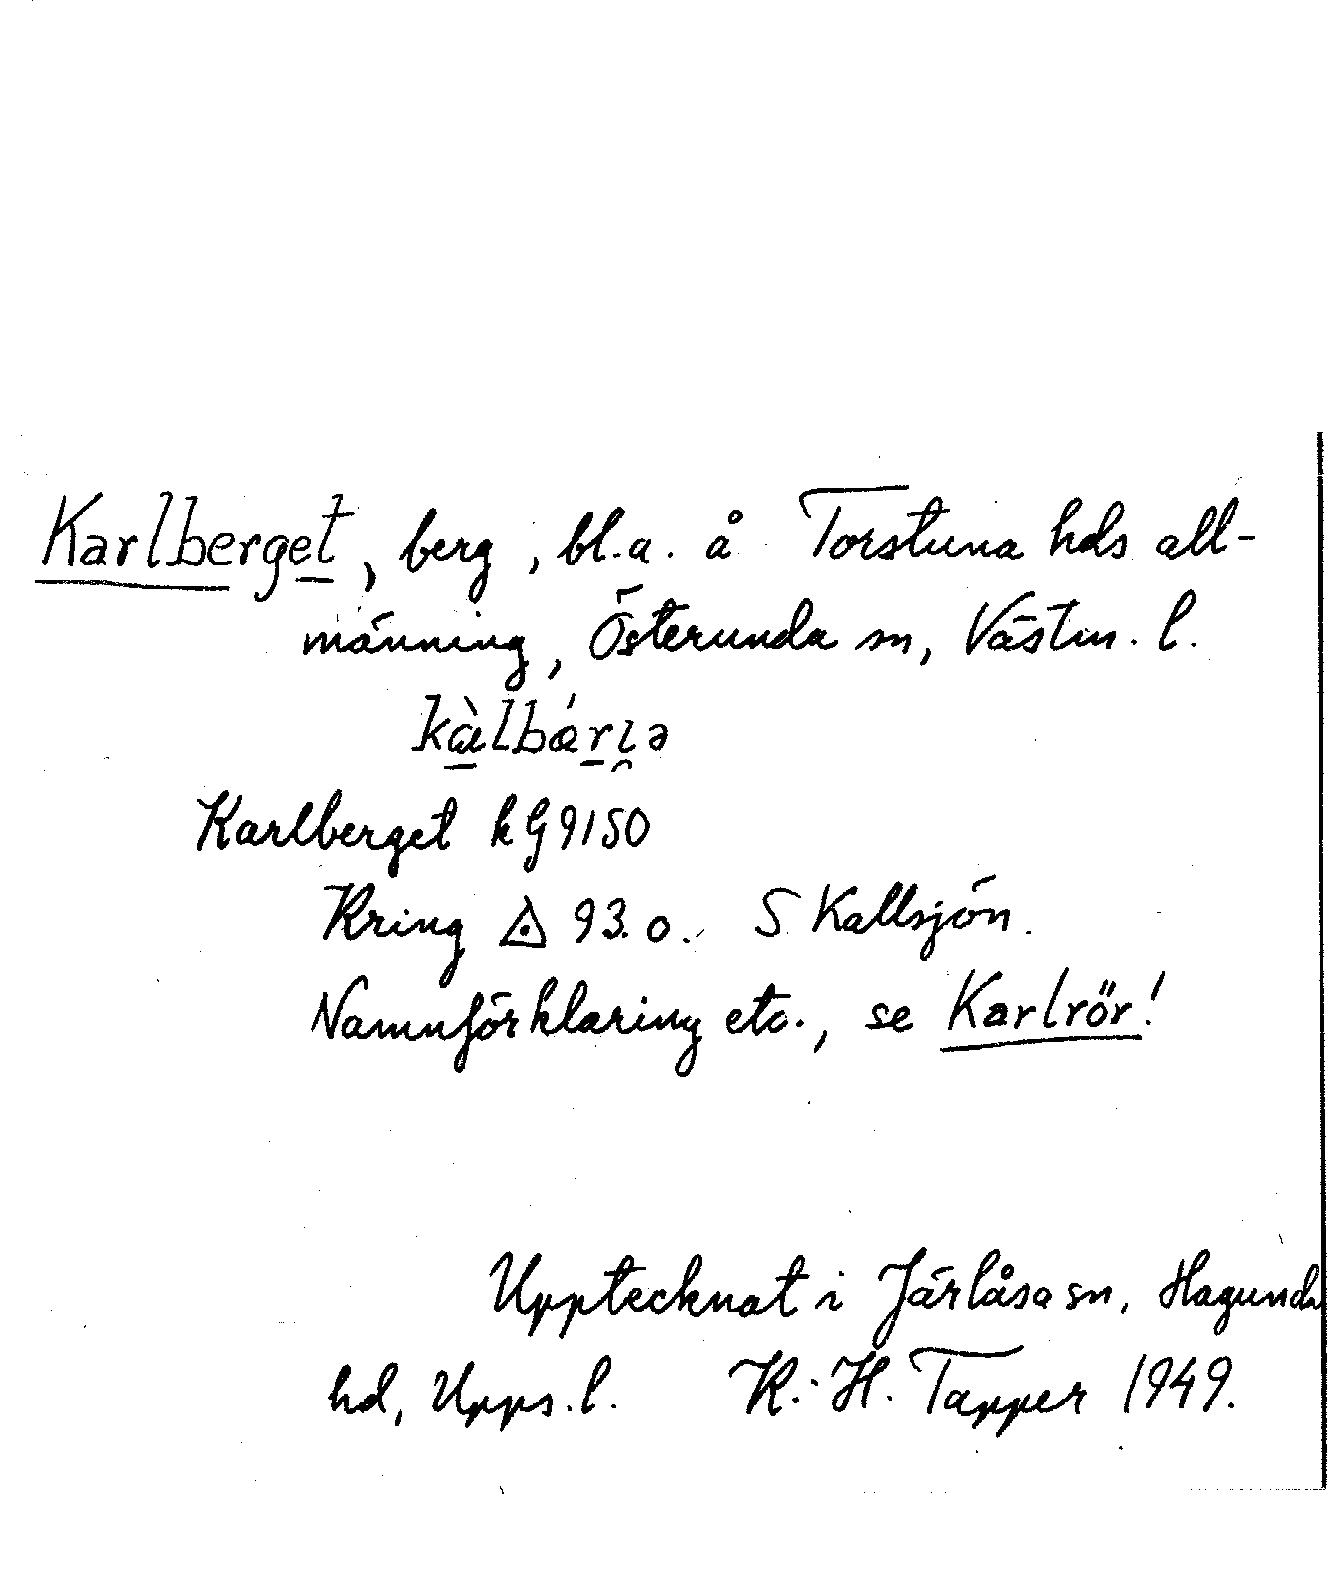 Karlberget, berg, bl.a. å Torstuna hds all-
männing, Österunda sn, Västm. l.
kàlbárɩ̯ə
Karlberget kG9150
Kring △ 93.0. S Kallsjön.
Namnförklaring etc., se Karlrör!
Upptecknat i Järlåsa sn, Hagunda
hd, Upps. l. K.-H. Tapper 1949.